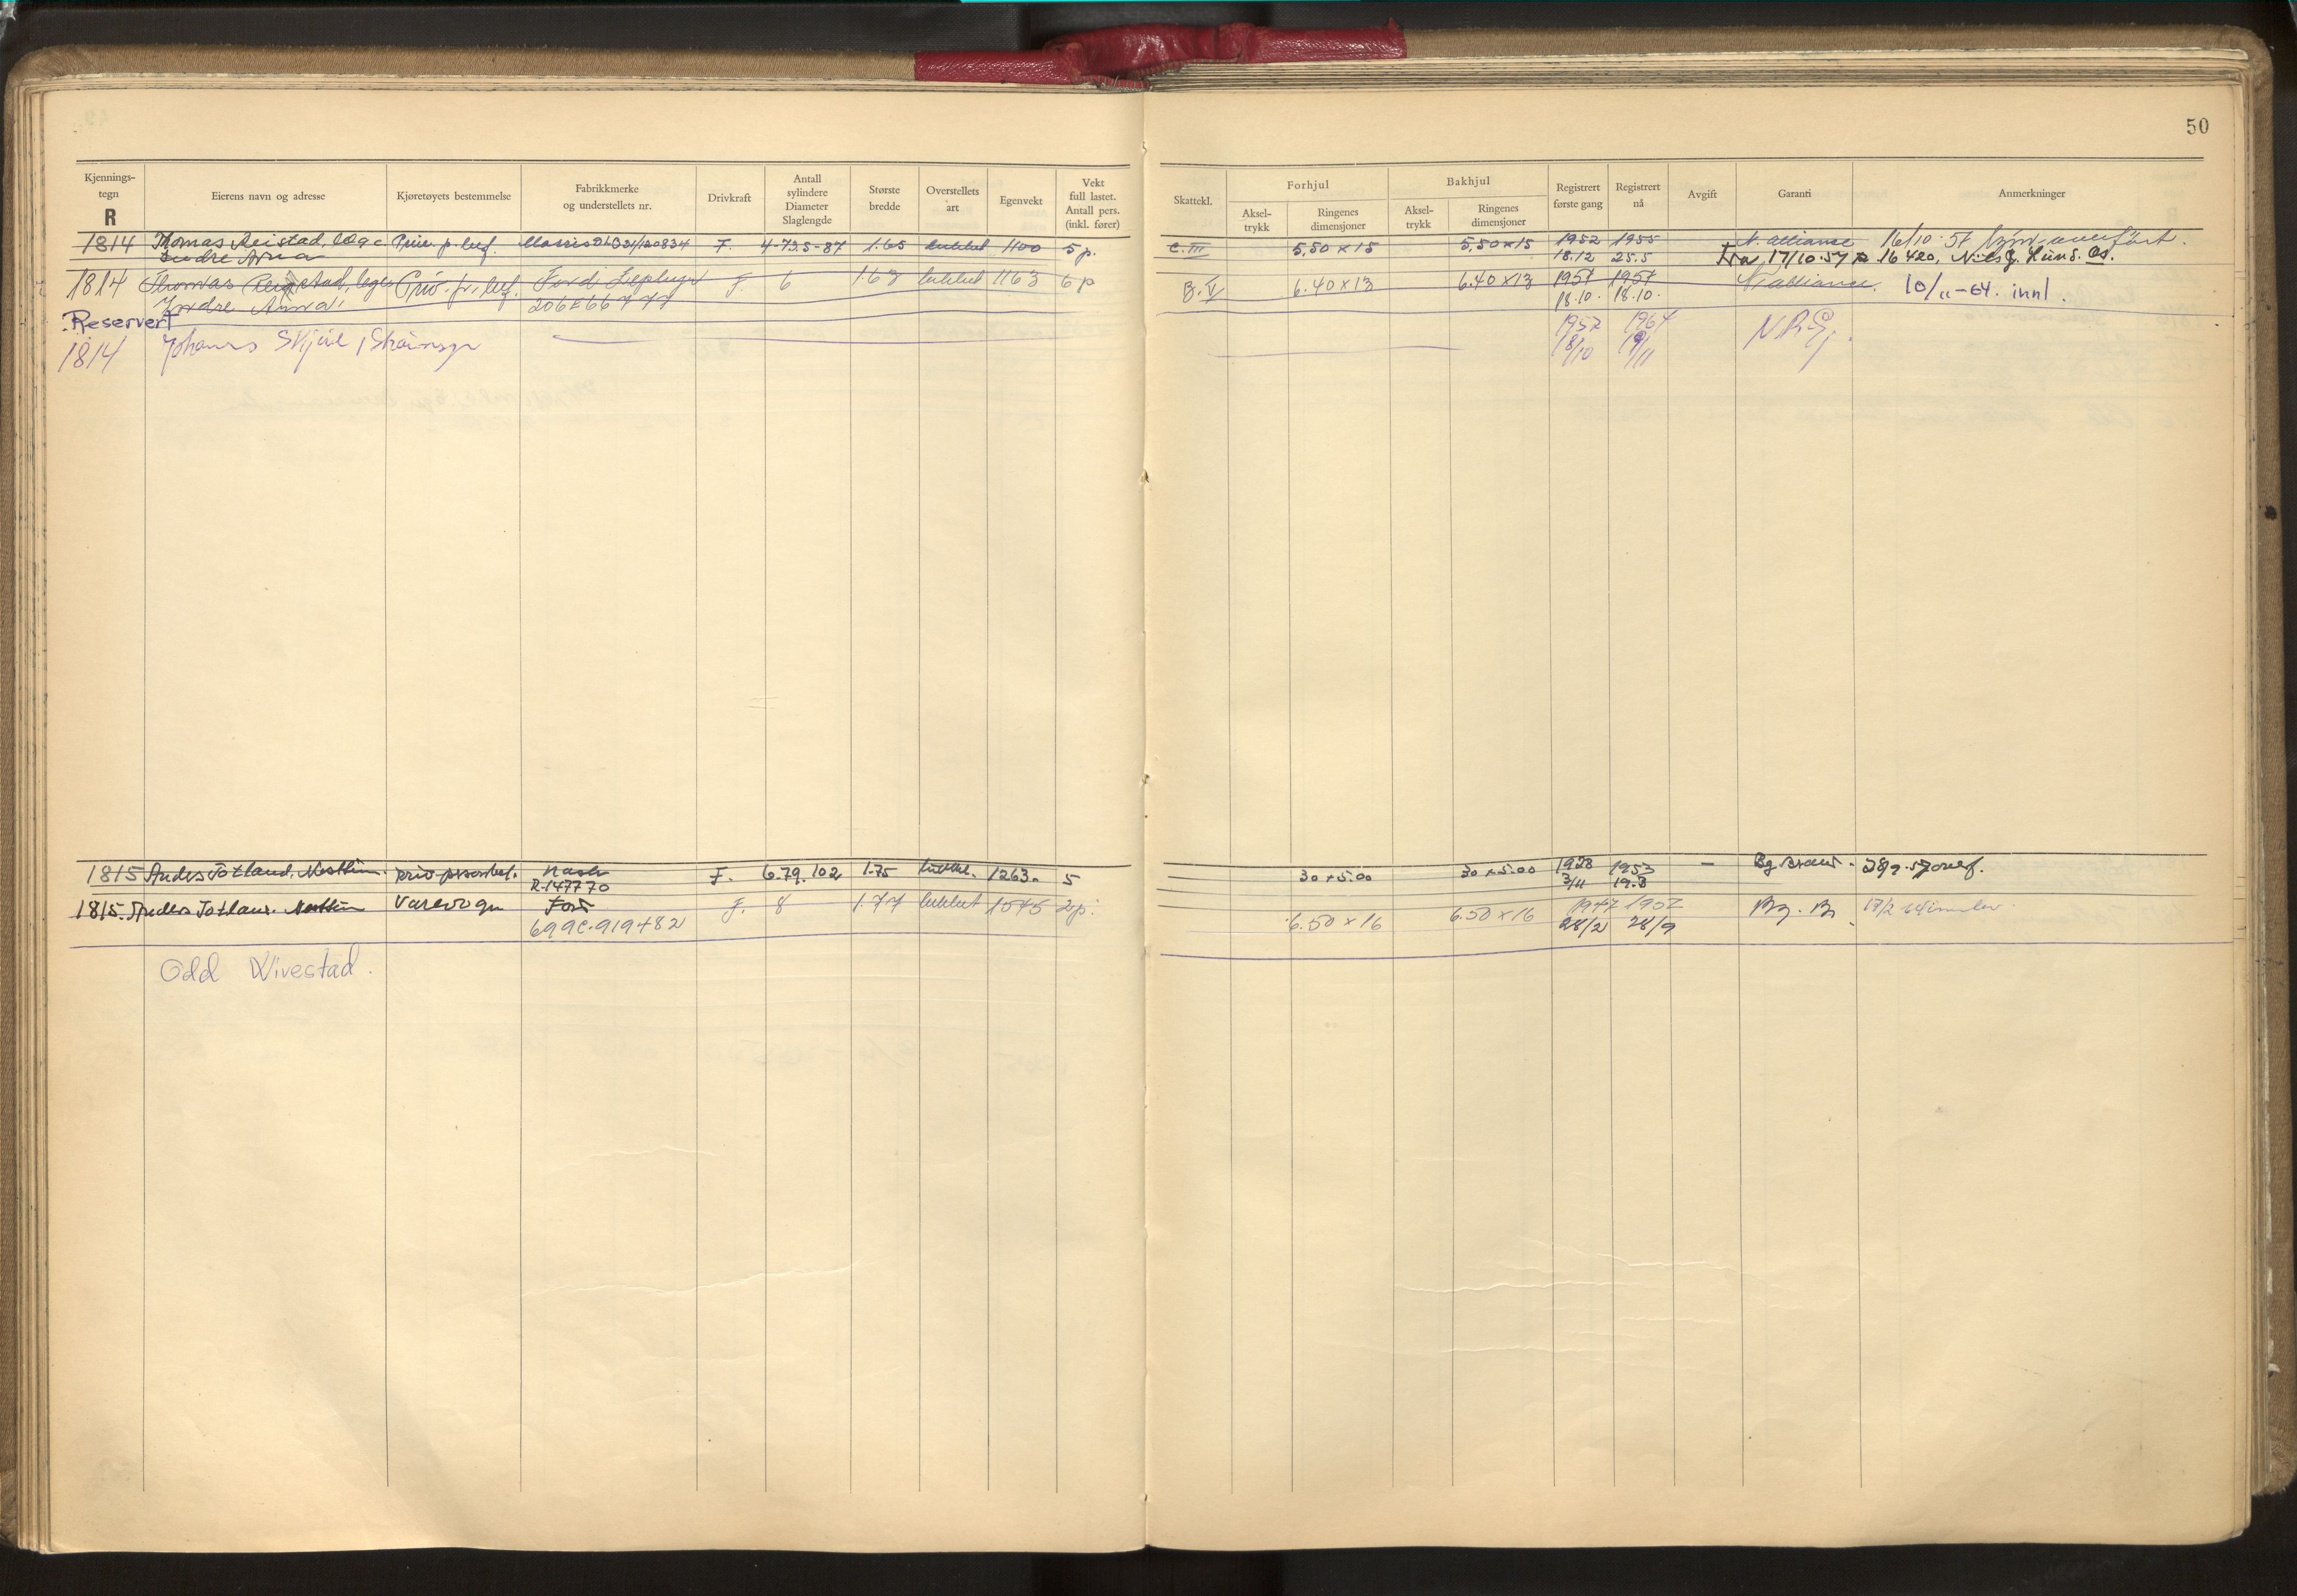 50
Kjennings-
tegn
R
Eierens navn og adresse
Kjøretøyets bestemmelse
Fabrikkmerke
og understellets nr.
Drivkraft
Antall
sylindere
Diameter
Slaglengde
Største
bredde
Overstellets
art
Egenvekt
Vekt
full lastet.
Antall pers.
(inkl. fører)
Skattekl.
Forhjul
Aksel-
trykk
Ringenes
dimensjoner
Bakhjul
Aksel-
trykk
Ringenes
dimensjoner
Registrert
første gang
Registrert
nå
Avgift
Garanti
Anmerkninger
1814 Thomas Reistad, læge Priv. p. bef. Morris F. 4-73.5-87 1.65 lukket 1100 5 p. C. III 5,50 x 15 5,50 x 15 1952 1955 N. alliance 16/10-57
Indre Arna 18.12 25.5 Fra 17/10.57 R 16420, Nils J. Lund. Os.
1814 Thomas Reistad, lege Priv. p. bef. Ford Zephyr F. 6 1.63 lukket 1163 6 p B. V 6.40 x 13 6.40 x 13 1957 1957 N. alliance. 10/11-64. innl.
Indre Arna 206E667 77 18.10. 18.10.
Reservert
1814 Johannes 1957 1964
18/10 19/11
1815 Anders Totland, Nesttun. priv. personbef. Nash F. 6.79.102 1.75 lukket. 1263. 5 30 x 5.00 30 x 5.00 1928 1953 -
R-147770 3/11 19.8
1815. Anders Totland. Nesttun Varevogn Ford F. 8 1.77 lukket 1545 2 p. 6.50 x 16 6.50 x 16 1947 1957 Bg. B.
699C.919482 28/2 28/9
Odd Vivestad.